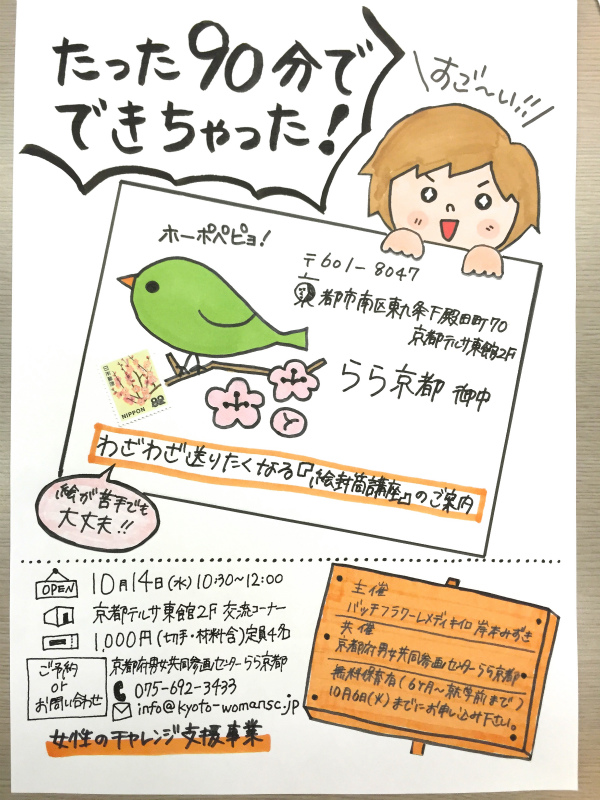 たった90分で
できちゃった!
すご〜い!!
ホーポペピョ!
〒601-8047
京都市南区東九条下殿田町70
京都テルサ東館2F
らら京都 御中
日本郵便
82
NIPPON
わざわざ送りたくなる『絵封筒講座』のご案内
絵が苦手でも
大丈夫!!
OPEN 10月14日(水)10:30~12:00
京都テルサ東館2F 交流コーナー
1,000円(切手・材料含)定員4名
ご予約
or
お問い合わせ
京都府男女共同参画センターらら京都
075-692-3433
info@kyoto-womansc.jp
女性のチャレンジ支援事業
主催
バッチフラワーレメディキイロ 岸本みずき
共催
京都府男女共同参画センターらら京都
無料保育有(6ヶ月~就学前まで)
10月6日(火)までにお申し込み下さい。